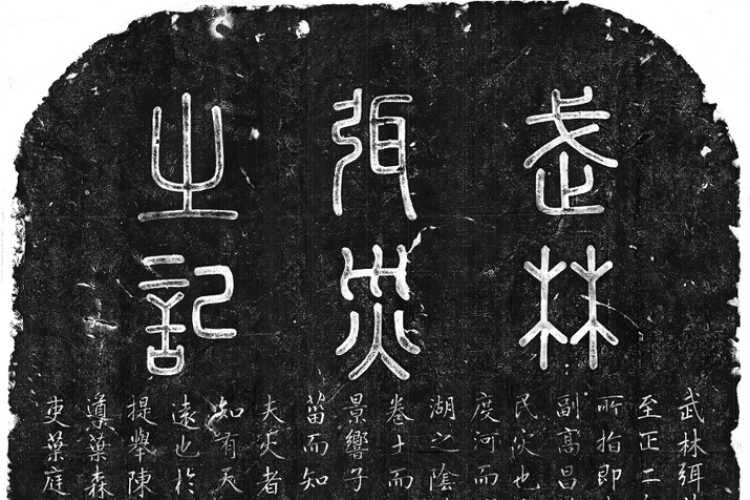 武林
弭災
之記
武林弭
至正二
所指即
副高昌
民灾也
度河而
湖之陰
卷土而
景響子
菑而知
夫灾者
知有天
遠也於
提舉陳
導葉森
吏葉庭